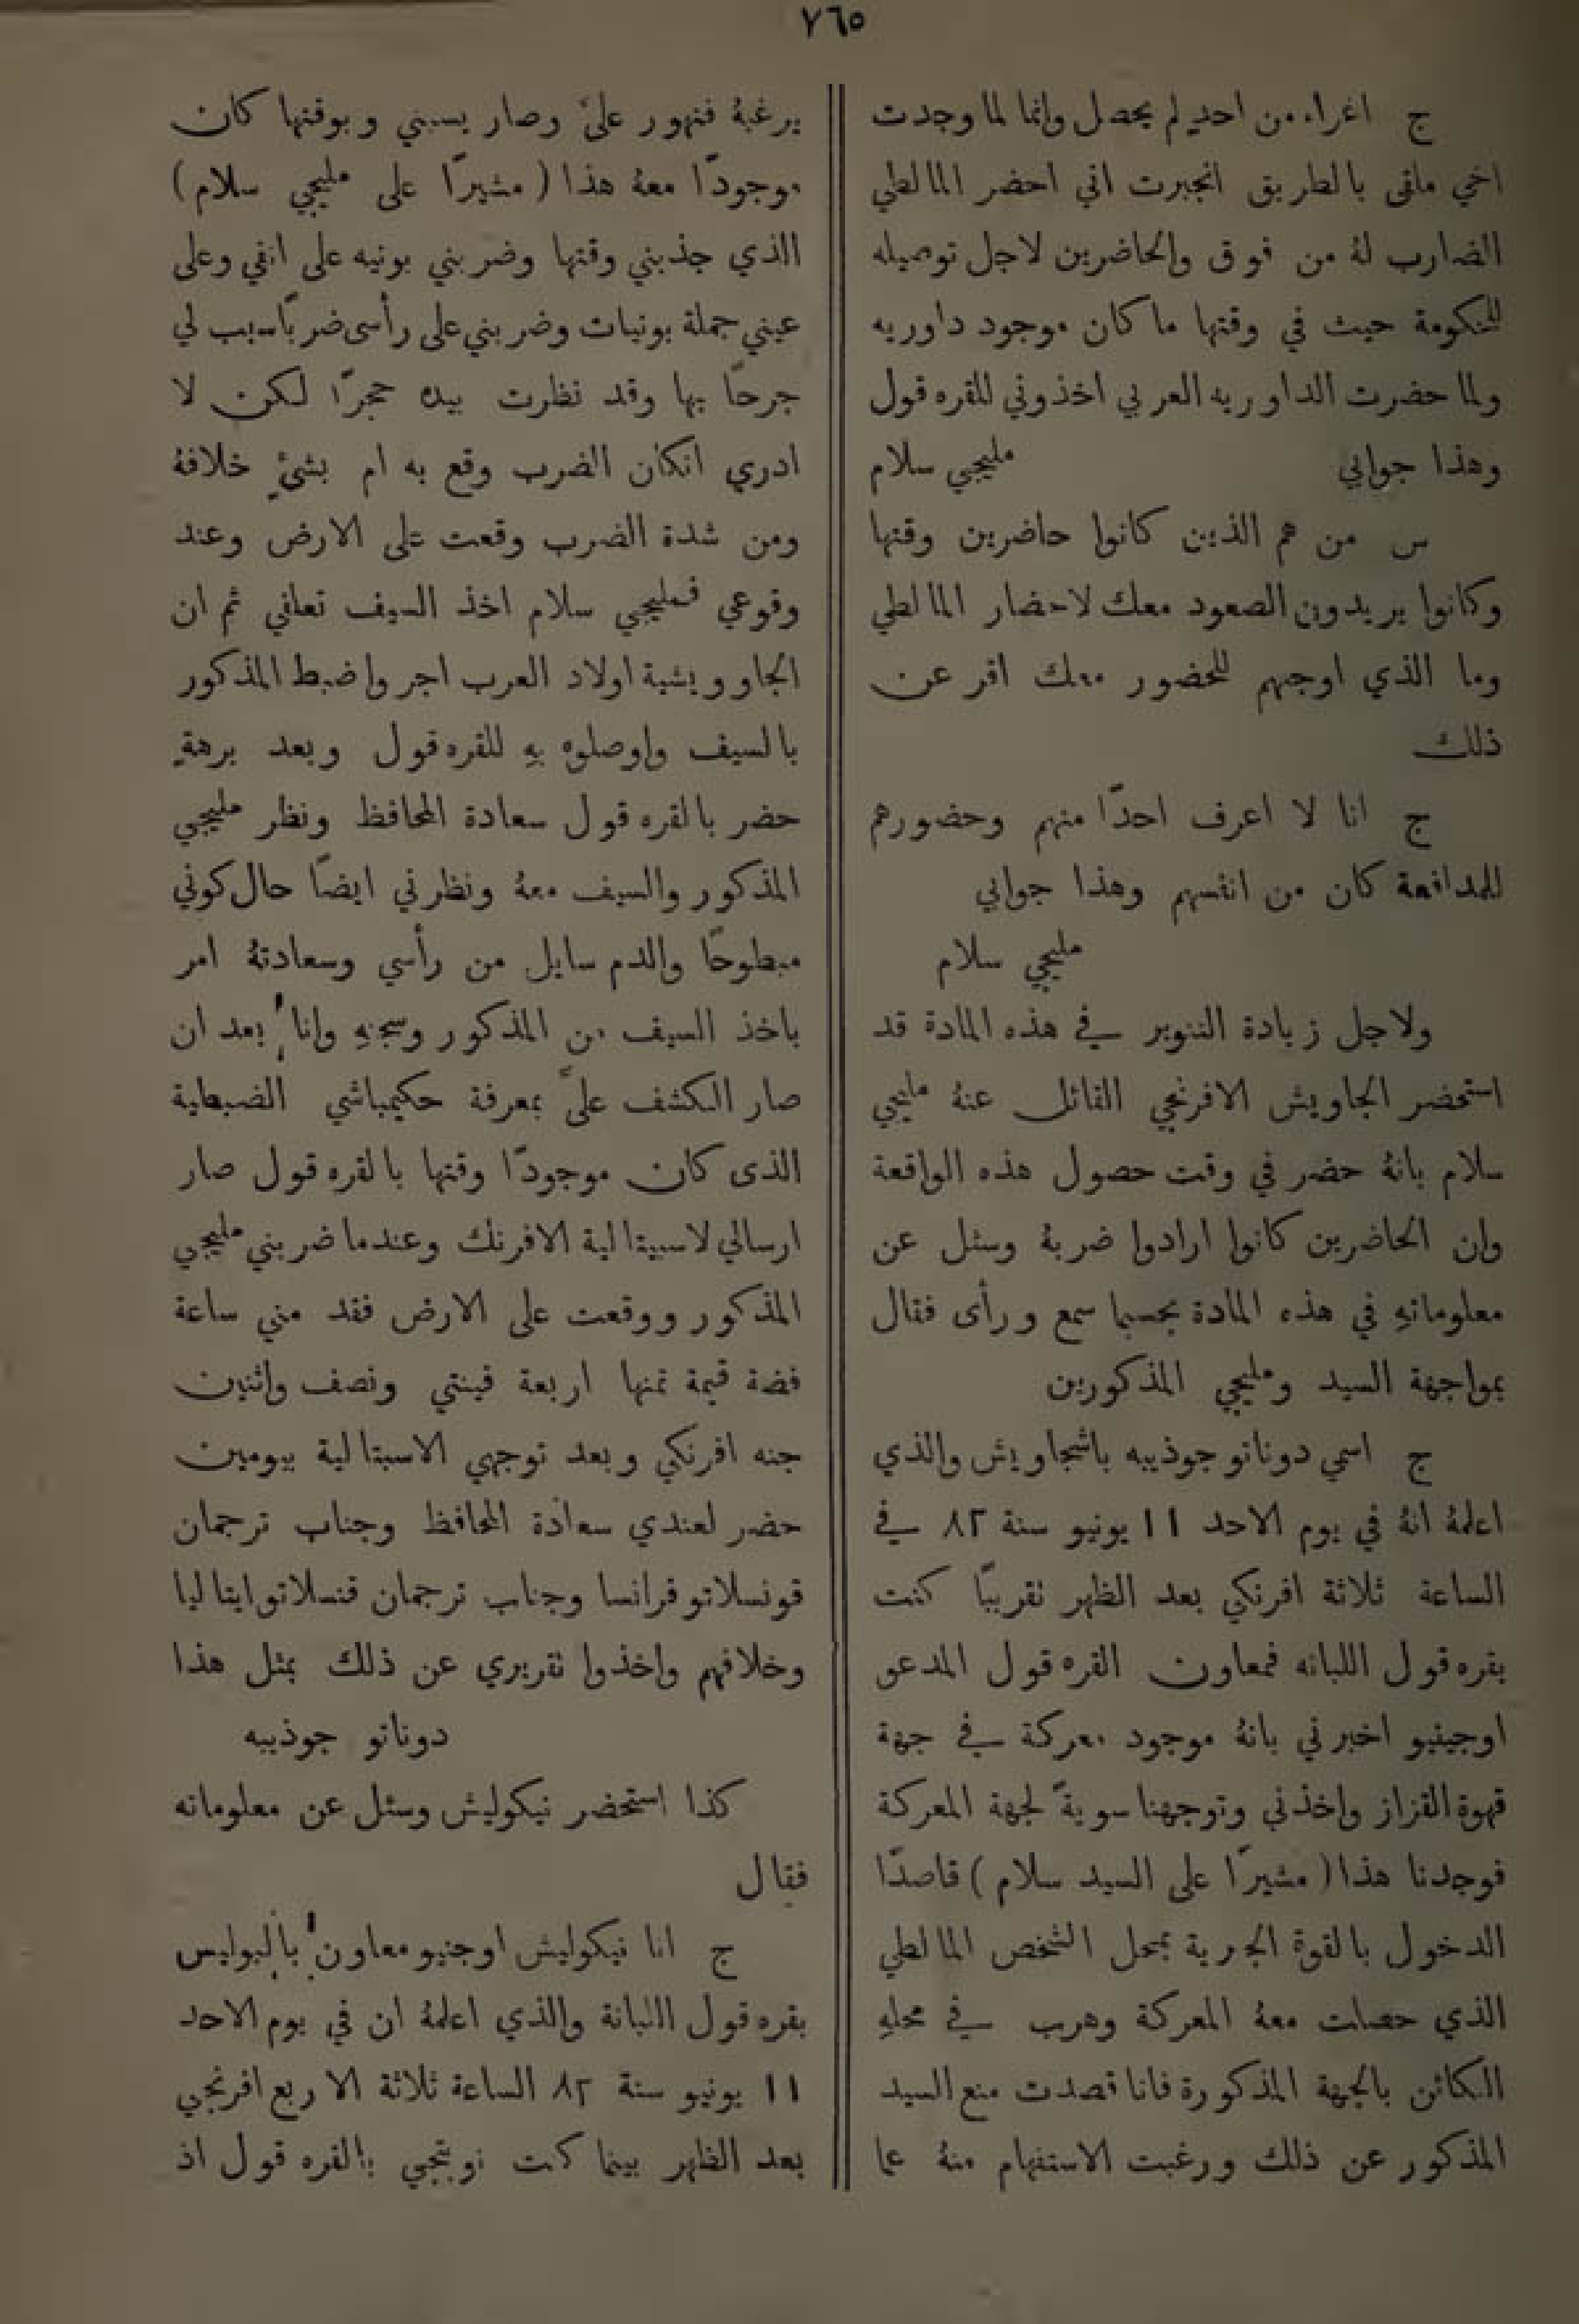 ٧٦٥
ج اغراء من احدٍ لم يحصل وانما لما وجدت
اخي ملقى بالطريق انجبرت اني احضر المالطي
الضارب لهُ من فوق والحاضرين لاجل توصيله
للحكومة حيث في وقتها ما كان موجود داوريه
ولما حضرت الداوريه العربي اخذوني للقره قول
وهذا جوابي مليجي سلام
س من هم الذين كانوا حاضرين وقتها
وكانوا يريدون الصعود معك لاحضار المالطي
وما الذي اوجبهم للحضور معك اقر عن
ذلك
ج انا لا اعرف احدًا منهم وحضورهم
للمدافعة كان من انفسهم وهذا جوابي
مليجي سلام
ولاجل زيادة التنوير في هذه المادة قد
استحضر الجاويش الافرنجي القائل عنهُ مليجي
سلام بانهُ حضر في وقت حصول هذه الواقعة
وان الحاضرين كانوا ارادوا ضربهُ وسئل عن
معلوماتهِ في هذه المادة بحسبما سمع ورأى فقال
بمواجهة السيد ومليجي المذكورين
ج اسمي دوناتو جوذيبه باشجاويش والذي
اعلمهُ انهُ في يوم الاحد ١١ يونيو سنة ٨٢ في
الساعة ثلاثة افرنكي بعد الظهر تقريبًا كنت
بقره قول اللبانه فمعاون القره قول المدعو
اوجينيو اخبرني بانهُ موجود معركة في جهة
قهوة القزاز واخذني وتوجهنا سويةً لجهة المعركة
فوجدنا هذا (مشيرًا على السيد سلام) قاصدًا
الدخول بالقوة الجبرية بمحل الشخص المالطي
الذي حصلت معهُ المعركة وهرب في محلهِ
الكائن بالجهة المذكورة فانا قصدت منع السيد
المذكور عن ذلك ورغبت الاستفهام منهُ عما
يرغبهُ فتهور عليَّ وصار يسبني وبوقتها كان
موجودًا معهُ هذا (مشيرًا على مليجي سلام)
الذي جذبني وقتها وضربني بونيه على انفي وعلى
عيني جملة بونيات وضربني على رأسى ضربًا سبب لي
جرحًا بها وقد نظرت بيده حجرًا لكن لا
ادري انكان الضرب وقع به ام بشئٍ خلافهُ
ومن شدة الضرب وقعت على الارض وعند
وقوعي فمليجي سلام اخذ السيف تعلقي ثم ان
الجاوويشية اولاد العرب اجروا ضبط المذكور
بالسيف واوصلوه بهِ للقره قول وبعد برهةٍ
حضر بالقره قول سعادة المحافظ ونظر مليجي
المذكور والسيف معهُ ونظرني ايضًا حال كوني
مبطوحًا والدم سايل من رأسي وسعادتهُ امر
باخذ السيف من المذكور وسجنهِ وانا بعد ان
صار الكشف عليَّ بمعرفة حكيمباشي الضبطية
الذى كان موجودًا وقتها بالقره قول صار
ارسالي لاسبيتالية الافرنك وعندما ضربني مليجي
المذكور ووقعت على الارض فقد مني ساعة
فضة قيمة ثمنها اربعة فينتي ونصف واثنين
جنه افرنكي وبعد توجهي الاسبتالية بيومين
حضر لعندي سعادة المحافظ وجناب ترجمان
قونسلاتو فرانسا وجناب ترجمان قنسلاتو ايتاليا
وخلافهم واخذوا تقريري عن ذلك بمثل هذا
دوناتو جوذيبه
كذا استحضر نيكوليش وسئل عن معلوماته
فقال
ج انا نيكوليش اوجنيو معاون بالبوليس
بقره قول اللبانة والذي اعلمهُ ان في يوم الاحد
١١ يونيو سنة ٨٢ الساعة ثلاثة الا ربع افرنجي
بعد الظهر بينما كنت نوبتجي بالقره قول اذ